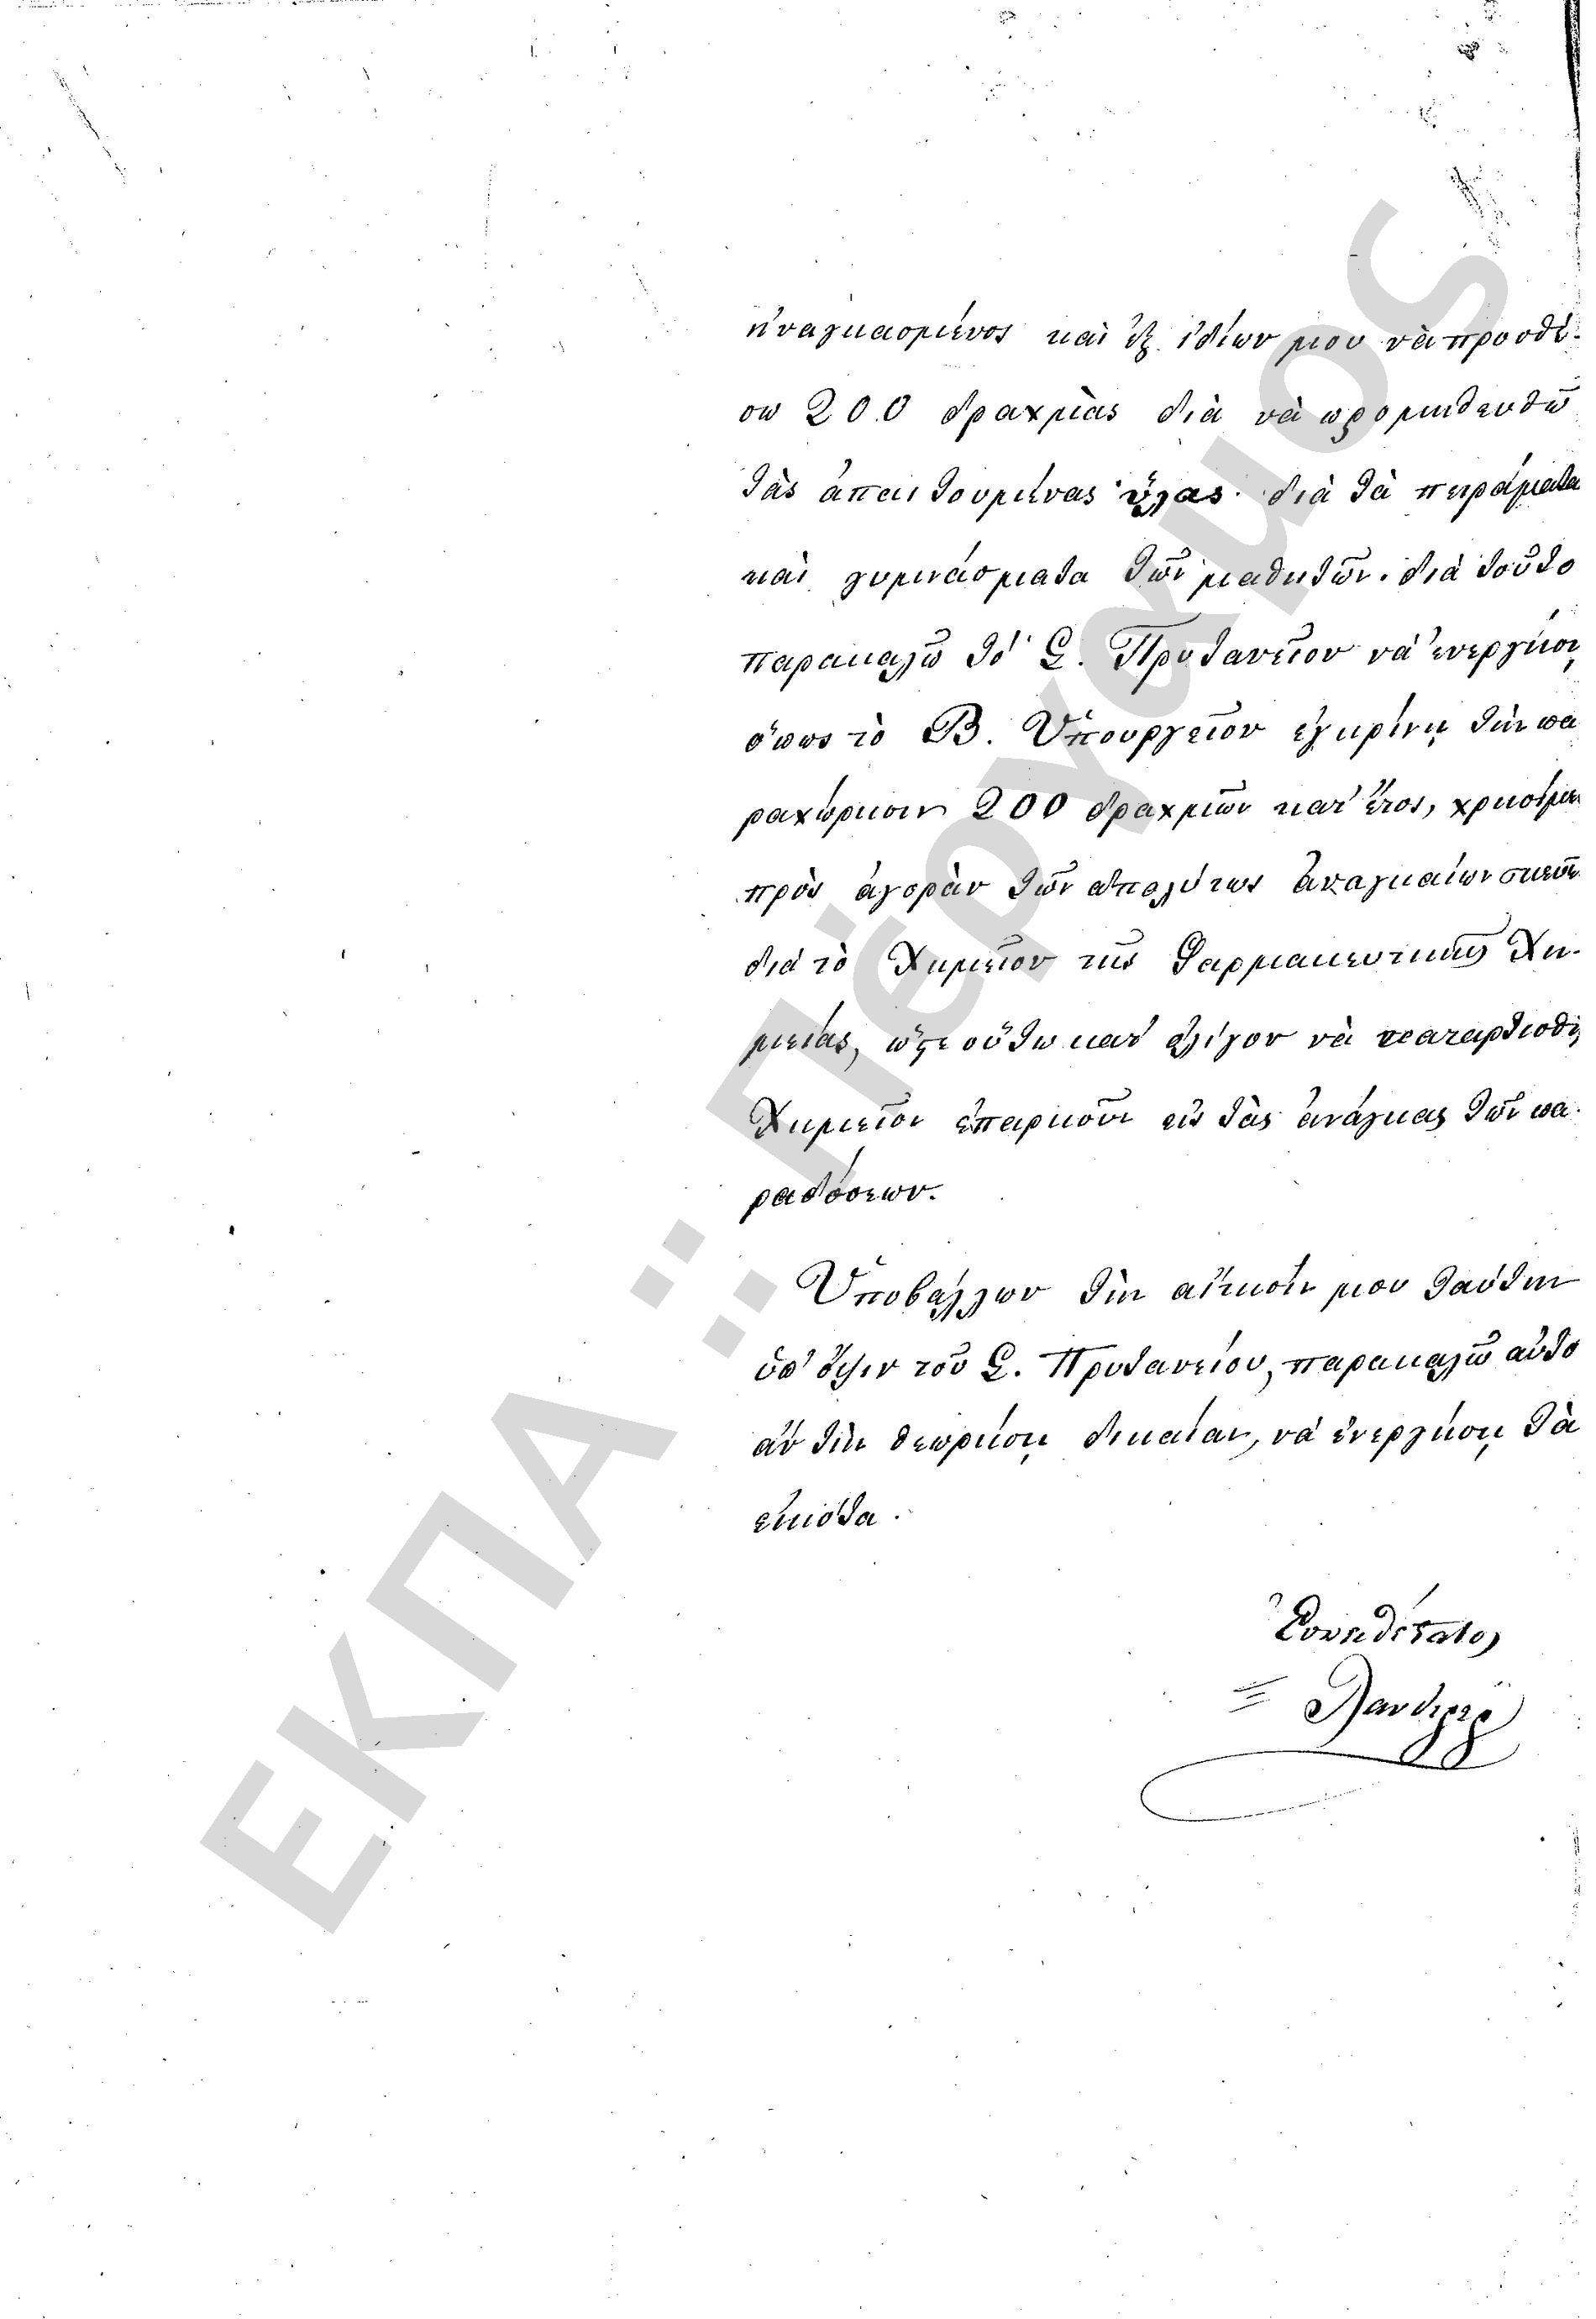 ἠναγκασμένος καὶ ἐξ ἰδίων μου νὰ προσθέ-
σω 200 δραχμὰς διὰ νὰ προμηθευθῶ
τὰς ἀπαιτουμένας ὕλας διὰ τὰ πειράματα
καὶ γυμνάσματα τῶν μαθητῶν. διὰ τοῦτο
παρακαλῶ τὸ Σ. Πρυτανεῖον νὰ ἐνεργήσῃ
ὅπως τὸ Β. Ὑπουργεῖον ἐγκρίνῃ τὴν πα
ραχώρησιν 200 δραχμῶν κατ' ἔτος,
πρὸς ἀγορὰν τῶν ἀπολύτως ἀναγκαίων σκευῶν
διὰ τὸ Χημεῖον τῆς Φαρμακευτικῆς Χη-
μείας, ὥστε οὕτω κατ' ὀλίγον νὰ καταρτισθῇ
Χημεῖον ἐπαρκοῦν εἰς τὰς ἀνάγκας τῶν πα-
ραδόσεων.
Ὑποβάλλων τὴν αἴτησίν μου ταύτην
ὑπ' ὄψιν τοῦ Σ. Πρυτανείου, παρακαλῶ αὐτὸ
ἂν τὴν θεωρήσῃ δικαίαν, νὰ ἐνεργήσῃ τὰ
εἰκότα.
Εὐπειθέστατος
Ξ Λανδερερ
ΕΚΠΑ : Πέργαμος